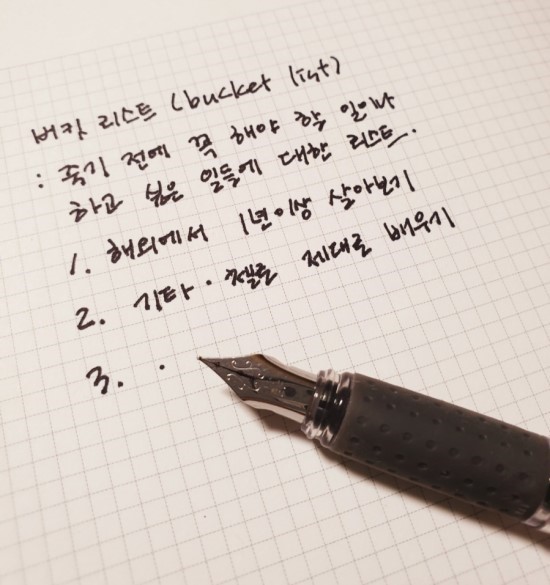 버킷 리스트 (bucket list)
: 죽기 전에 꼭 해야 할 일이나
하고 싶은 일들에 대한 리스트.
1. 해외에서 1년이상 살아보기
2. 기타 · 제대로 배우기
3. ·